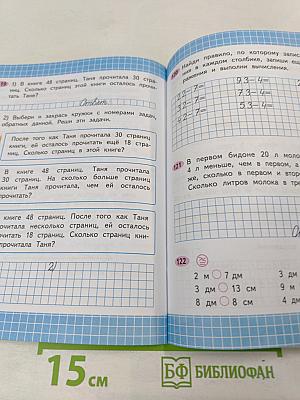 1) В книге 48 страниц. Таня прочитала 30 стра-
ниц. Сколько страниц этой книги осталось прочи-
тать Тане?
Ответ
2) Выбери и закрась кружки с номерами задач,
обратных данной. Реши эти задачи.
После того как Таня прочитала 30 страниц
книги, ей осталось прочитать ещё 18 стра-
ниц. Сколько страниц в этой книге?
В книге 48 страниц. Таня прочитала
30 страниц. На сколько больше страниц
книги Таня прочитала, чем ей осталось
прочитать?
книге 48 страниц. После того как Таня
прочитала несколько страниц, ей осталось
прочитать 18 страниц. Сколько страниц кни-
прочитала Таня?
2)
Найди правило, по которому
в каждом столбике, запиши ещё
ражения и выполни вычисления.
93-4=
73-4=
53-4=
121 В первом бидоне 20 л
4 л меньше, чем в первом, а
же, сколько в первом и
Сколько литров молока в
122
2 м 7 дм
3 дм 13 см
8 дм 8 см
3 дм
9 м
4 дм
15 см
БФ БИБЛИОФАН